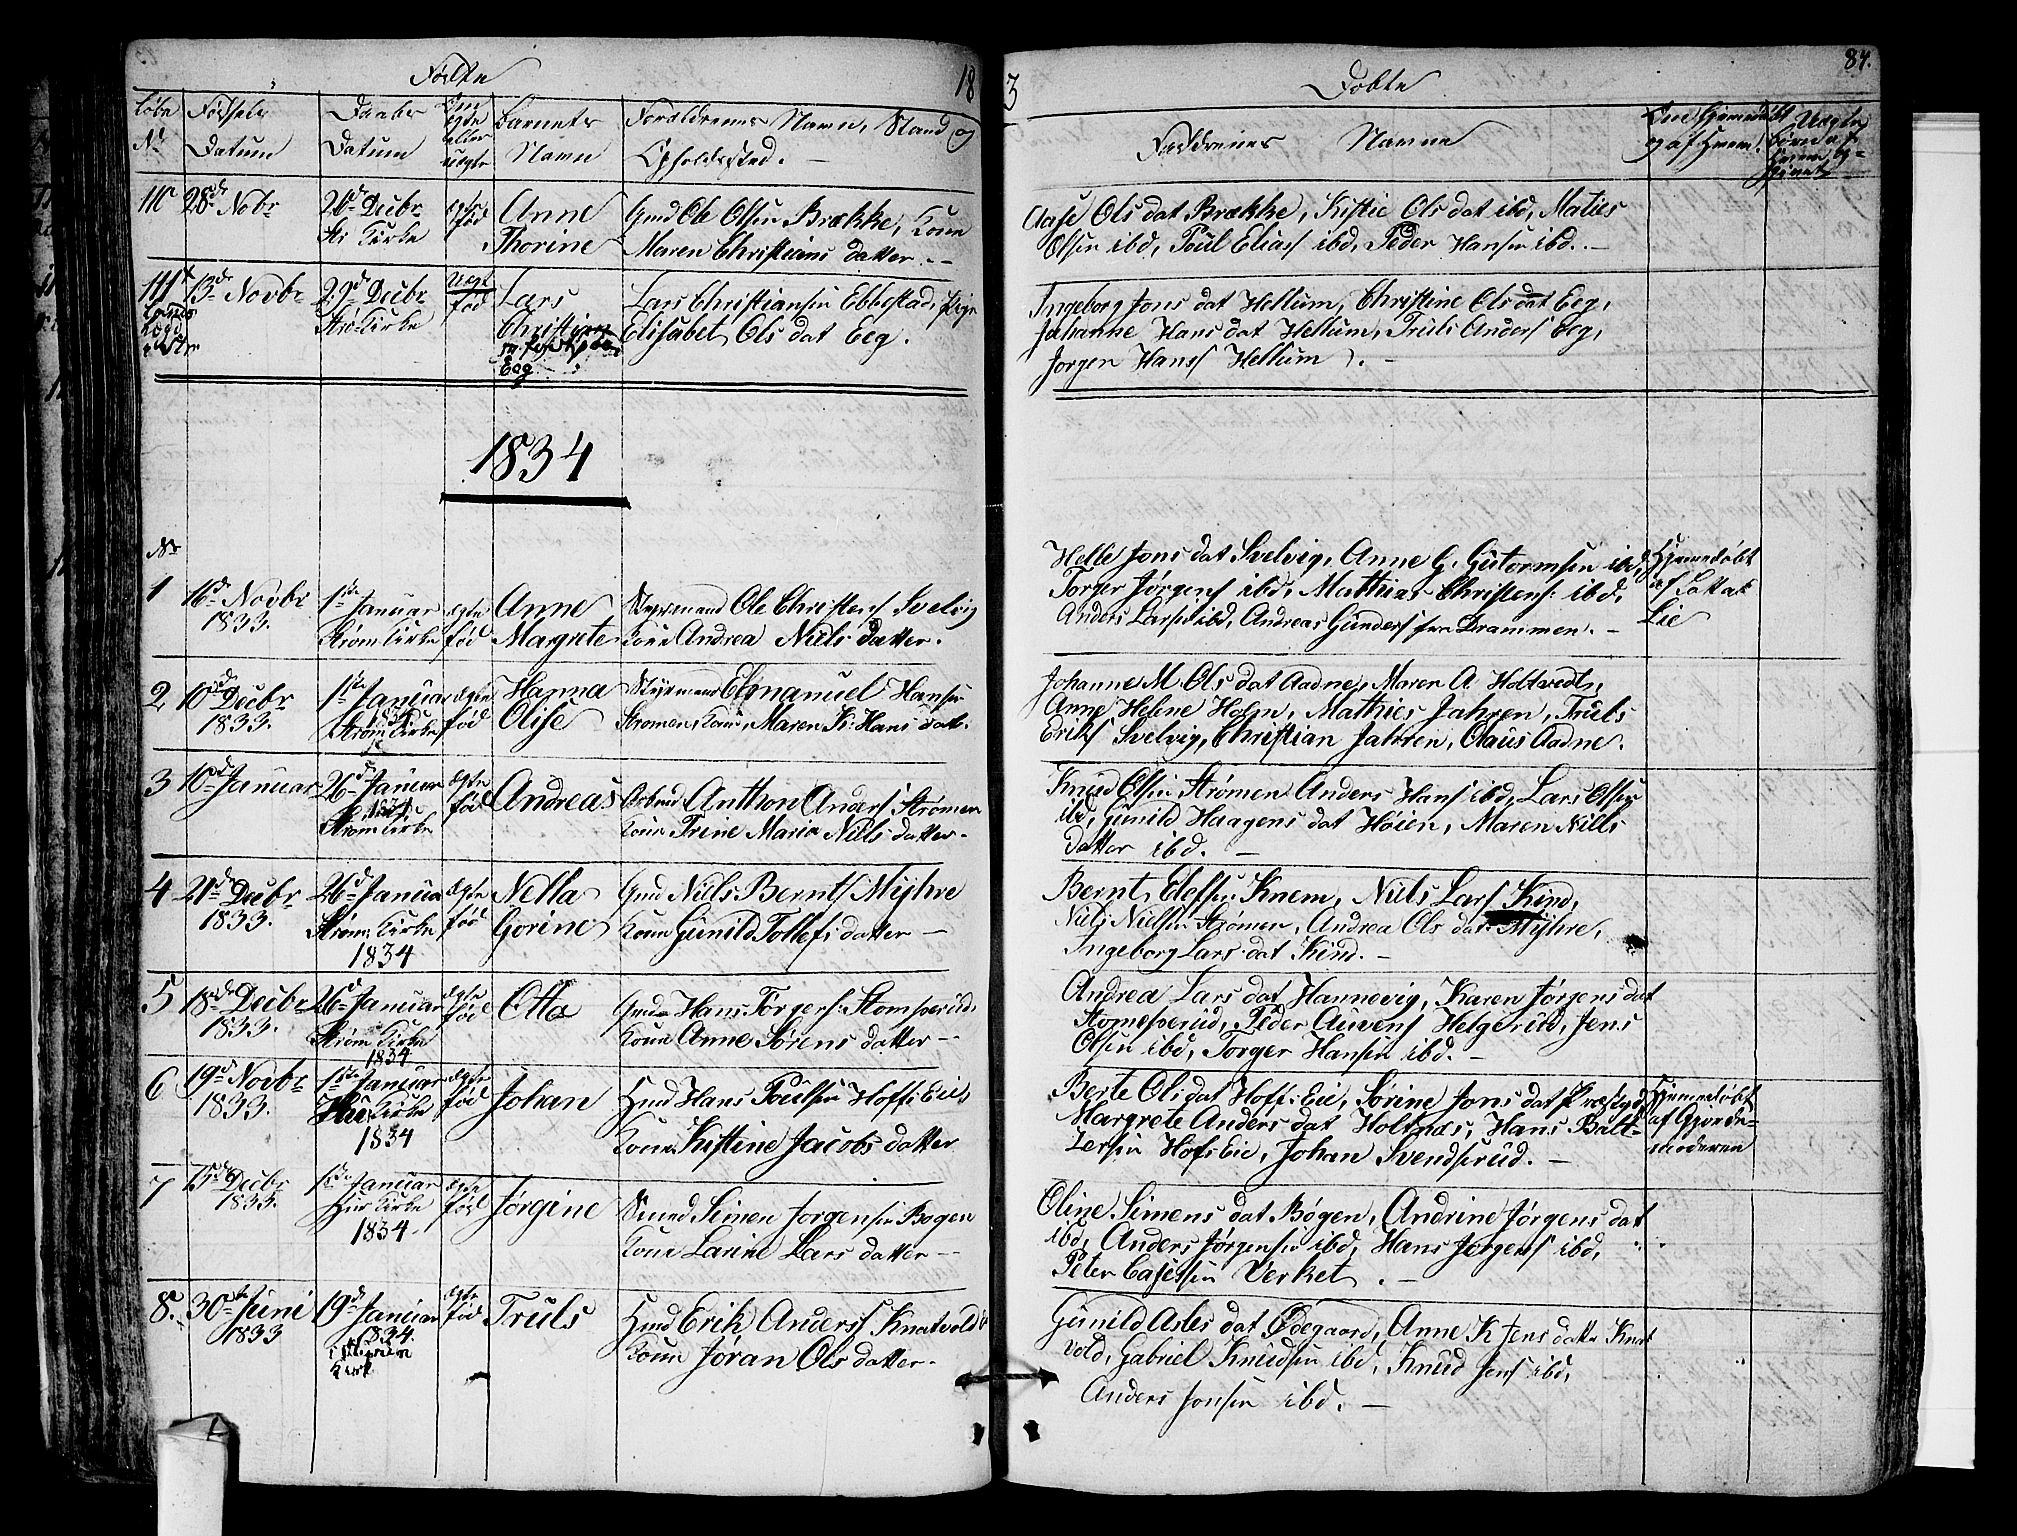 Födte 18
Löbe Födsels Daabs Om ægte eller uægte Barnets Forældrenes Navne, Stand og
No Datum Datum Navn Opholdssted. —
110 28de Novbr 26de Decbr ægte Anne Gmd Ole Olsen Brække, Kone
Str Kirke fød Thorine Maren Christians datter. —
111 13de Novbr 29de Decbr Uægt Lars Lars Christiansen Ebbestad, Pige
Strö Kirke fød Christian Elisabet Ols dat Eeg.
Eeg
1834
No
1 16de Novbr 1ste Januar ægte Anne Styrmand Ole Christens Svelvig
1833. Ström Kirke fød Margrete Kone Andrea Niels datter.
2 10de Decbr 1ste Januar ægte Hanna Styrmand Emanuel Hansen
1833. 1834 Ström Kirke fød Olise Strömen, Kone, Maren K: Hans datt.
3 10de Januar 26de Januar ægte Andreas Arbmd Anthon Anders Strömen
1834 Ström Kirke fød Kone Trine Maria Niels datter.
4 21de Decbr 26de Januar ægte Nella Gmd Niels Bernts Myhre
1833. Ström Kirke fød Gorine Kone Gunild Tollefs datter —
1834
5 18de Decbr 26de Januar ægte Otto Gmd Hans Torgers: Stomperud,
1833. Ström Kirke fød Kone Anne Sörens datter —
1834
6 19de Novbr 1ste Januar ægte Johan Hmd Hans Poulsen Hoffs Eie,
1833. Hur Kirke fød Kone Kistine Jacobs datter
1834
7 15de Decbr 1ste Januar ægte Jørgine Smed Simen Jorgensen Bogen
1833. Hur Kirke fød Kone Larine Lars datter —
1834.
8. 30te Juni 19de Januar ægte Truls Hmd Erik Anders Knatvold
1833 1834. fød Kone Joran Ols datter.
Kirk
3 Döbte 84.
Faddrenes Navne Om Hjemmedöbt
og af Hvem!
Aase Ols dat Brække, Kistie Ols dat ibd, Maties
Olsen ibd, Poul Elias ibd, Peder Hansen ibd. —
Ingeborg Jons dat Hellum, Christine Ols dat Eeg,
Johanne Hans dat Hellum, Truls Anders Eeg,
Jorgen Hans Hellum. —
Helle Jons dat Svelvig, Anne G. Gutormsen ibd, Hjemedöbt
Torger Jørgens ibd, Mathias Christens: ibd, af
Anders Lars ibd, Andreas Gunders fra Drammen. — Lie
Johanne M. Ols dat Aadne, Maren A Holtvedt,
Anne Helene Holm, Mathies Jahren, Truls
Eriks Svelvig, Christian Jahren, Claus Aadne.
Knud Olsen Strømen Anders Hans ibd, Lars Olsen
ibd, Gunild Haagens dat Høien, Maren Niels
datter ibd. —
Bernt Knem, Niels Lars Kind,
Niels Nielsen Strømen, Andrea Ols dat Myhre,
Ingeborg Lars dat Kind. —
Andrea Lars dat Hannevig, Karen Jørgens dat
Stomperud, Peder Auvens Helgerud, Jens
Olsen ibd, Torger Hansen ibd. —
Berte Ols dat Hoffs Eie, Sørine Jons dat Præstgd, Hjemmedöbt
Margrete Anders dat Holtnæs, Hans Balt- af Gjorde-
zersen Hofs Eie, Johan Svendsrud. — moderen
Oline Simens dat Bøgen, Andrine Jørgens dat
ibd, Anders Jørgensen ibd, Hans Jørgens ibd,
Peter Casessen Verket. —
Gunild Asles dat Ødegaard, Anne K Jens datter Knat
vold, Gabriel Knudsen ibd, Knud Jens ibd,
Anders Jonsen ibd. —